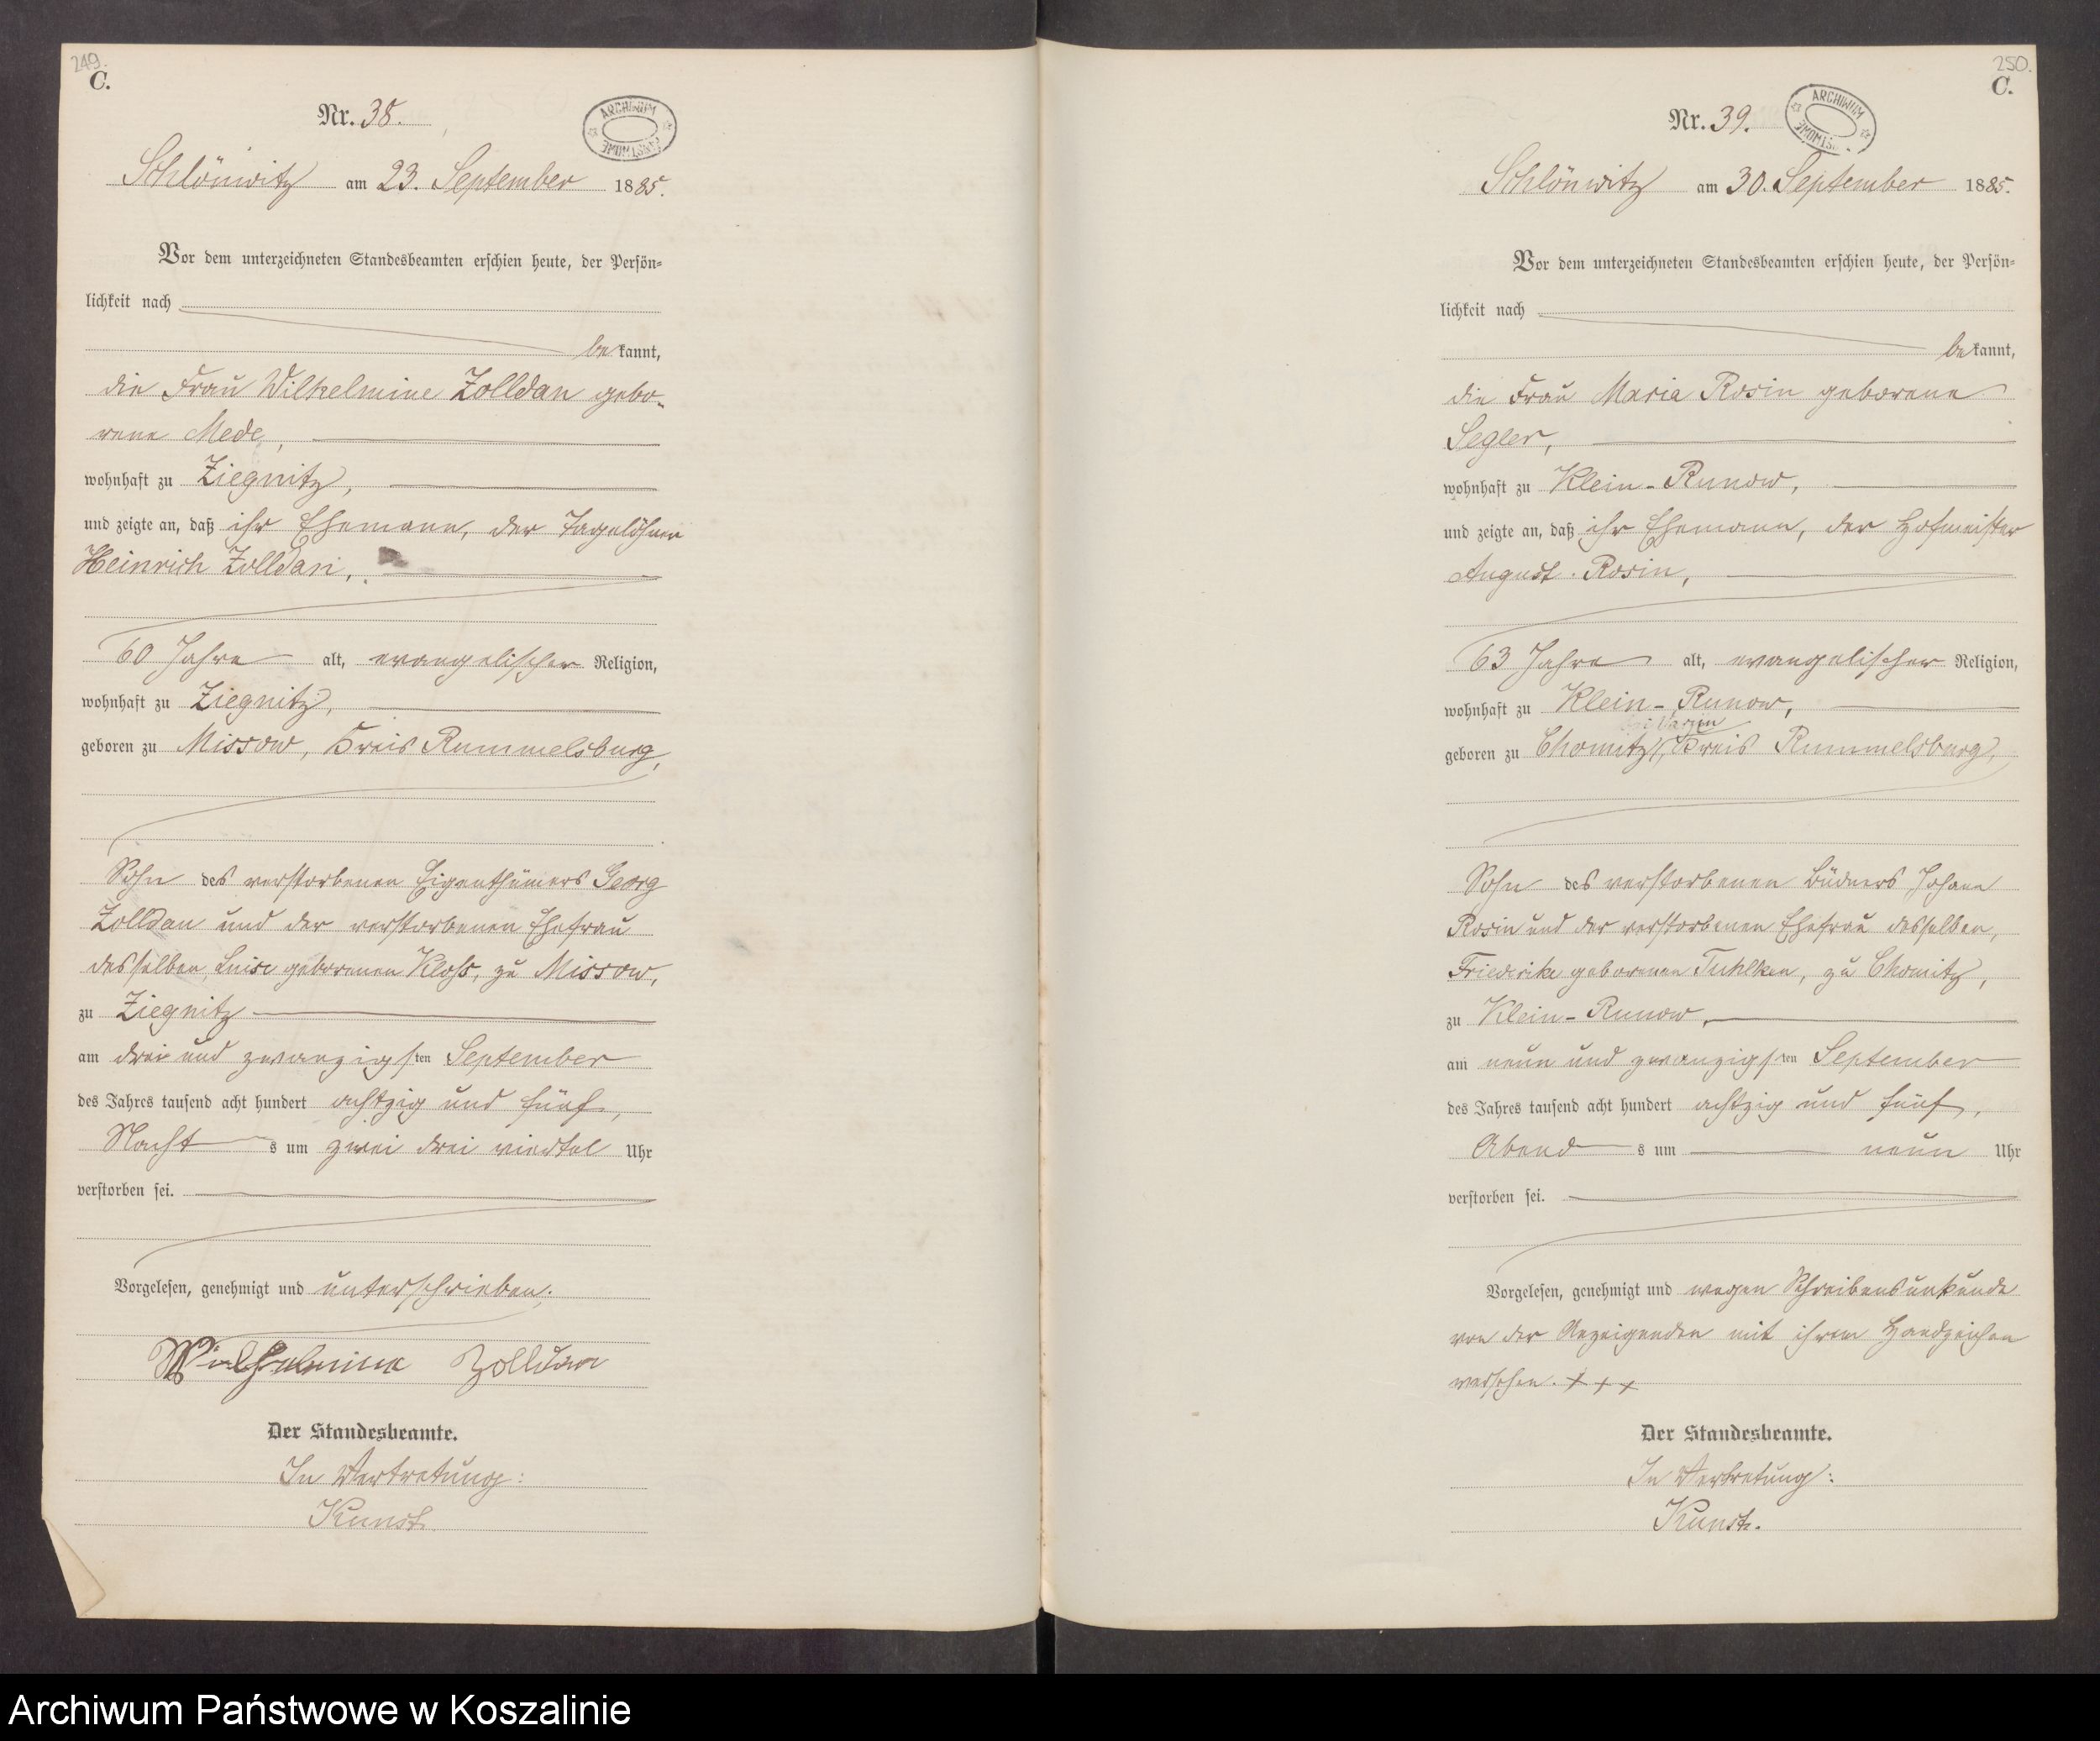 249.
C.
Nr. 38.
ARCHIWUM
Schlönwitz am 23. September 1885.
Vor dem unterzeichneten Standesbeamten erschien heute, der Persön-
lichkeit nach
bekannt,
die Frau Wilhelmine Zolldan gebo-
rene Mede,
wohnhaft zu Ziegnitz,
und zeigte an, daß ihr Ehemann, der Tagelöhner
Heinrich Zolldan,
60 Jahre alt, evangelischer Religion,
wohnhaft zu Ziegnitz,
geboren zu Missow, Kreis Rummelsburg,
Sohn des verstorbenen Eigenthümers Georg
Zolldan und der verstorbenen Ehefrau
desselben, Luise geborenen Kloß, zu Missow,
zu Ziegnitz
am drei und zwanzigsten September
des Jahres tausend acht hundert achtzig und fünf,
Nachts um zwei drei viertel Uhr
verstorben sei.
Vorgelesen, genehmigt und unterschrieben.
Wilhelmine Zolldan
Der Standesbeamte.
In Vertretung:
Kunst.
250.
C.
Nr. 39.
ARCHIWUM
Schlönwitz am 30. September 1885.
Vor dem unterzeichneten Standesbeamten erschien heute, der Persön-
lichkeit nach
bekannt,
die Frau Maria Rosin geborene
Segler,
wohnhaft zu Klein-Runow,
und zeigte an, daß ihr Ehemann, der Hofmeister
August Rosin,
63 Jahre alt, evangelischer Religion,
wohnhaft zu Klein-Runow,
bei Varzin
geboren zu Chomitz, Kreis Rummelsburg,
Sohn des verstorbenen Büdners Johann
Rosin und der verstorbenen Ehefrau desselben,
Friederike geborenen Tuhlken, zu Chomitz,
zu Klein-Runow,
am neun und zwanzigsten September
des Jahres tausend acht hundert achtzig und fünf,
Abends um neun Uhr
verstorben sei.
Vorgelesen, genehmigt und wegen Schreibensunkunde
von der Anzeigenden mit ihrem Handzeichen
versehen. + + +
Der Standesbeamte.
In Vertretung:
Kunst.
Archiwum Państwowe w Koszalinie